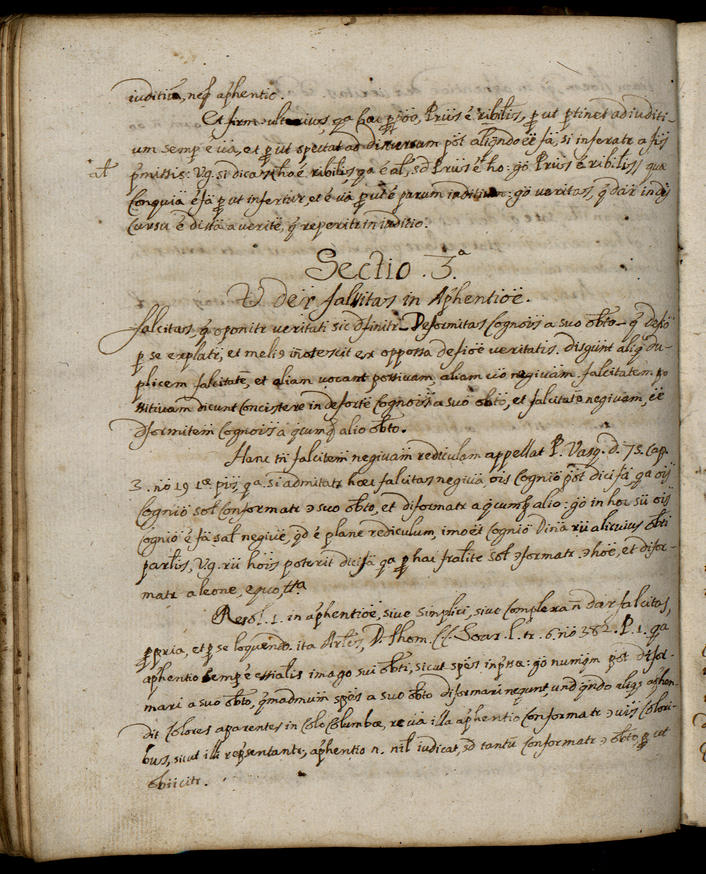 iuditiū, neq̃ ap̃hentio.
Et firm. ulterius, q̃a hæc p̃p̃õo, Pr̃us ẽ ribĩlis, prout p̃tinet ad iuditi-
um semp̃ e uã, et p̃ ut spectat ad discursum põt aliq̃do ẽe fã, si inferatr a fĩs
al̃ p̃missis: Vg. si dicas ĩho ẽ ribilis q̃a ẽ al̃, sd Pr̃us ẽ ho: gõ Pr̃us ẽ ribĩlis, quæ
Conq̃uia ẽ fã p̃ ut infertur, et ẽ uã p̃ ut ẽ parum iuditium: gõ veritas, q̃ dãr in dis
cursu ẽ distã a veritẽ, q̃ reperitr in iuditio.
Sectio. 3.ª
V dẽr falsitas in Ap̃hentiõe.
falcitas, q̃ oponitr veritati sic dfinitr. Deformitas Cognoĩs a suo obto. q̃ defiõ
p̃ se explatr, et meliq inotescit ex opposa defiõe veritatis. Disgunt aliq̃ du-
plicem falcitatẽ, et aliam vocant possivam, aliam verò negivam. falcitatem po
ssitivam dicunt Concistere in deforte Cognoĩs a suo obtõ, et falcitatẽ negivam, ẽe
dformitem Cognoĩs a q̃cumq̃ alio obto.
Hanc tñ falcitem negivam rediculam appellat P. Vasq. d. 75. Cap.
3. nõ 19 1ẽ p̃is, q̃a. si admitatr hæc falcitas negiva oĩs Cognio põt dici fã, q̃a oĩs
Cognio sol Conformatr ɔ suo obto, et diformatr a q̃cumq̃ alio: gõ in hoc sũ oĩs
Cognio ẽ fã sal negivẽ, q̃d ẽ plane rediculum, imo ẽt Cognio Dinã rũ alicuius obti
parlis, Vg. rũ hoĩs poterit dici fã q̃a p̃ hac fralite sol ɔformatr ɔ hoẽ, et difor-
matr a leone, equo, ttª
Resol. 1. in aphentiõe, siue simplici, siue complexa ñ dar falcitas,
p̃pria, et p̃ se loquendo. ita Arles, D. Thom. CC. Soar. l. tr. 6. nõ 38 2. P. 1. q̃a
aphentio semp̃ ẽ essialis imago sui obti, sicut spẽs inp̃sa: gõ numq̃m põt difor-
mari a suo obto, q̃madmum spẽs a suo obto diformari neq̃unt, und q̃ndo aliq̃s aphen-
dit Colores aparentes in Colo Columbæ, re va illa aphentio Conformatr ɔ vijs Colori-
bus, sicut illi rep̃sentantr; aphentio n. nil iudicat, sd tantũ Conformatr ɔ obto p̃ ut
obijcitr.